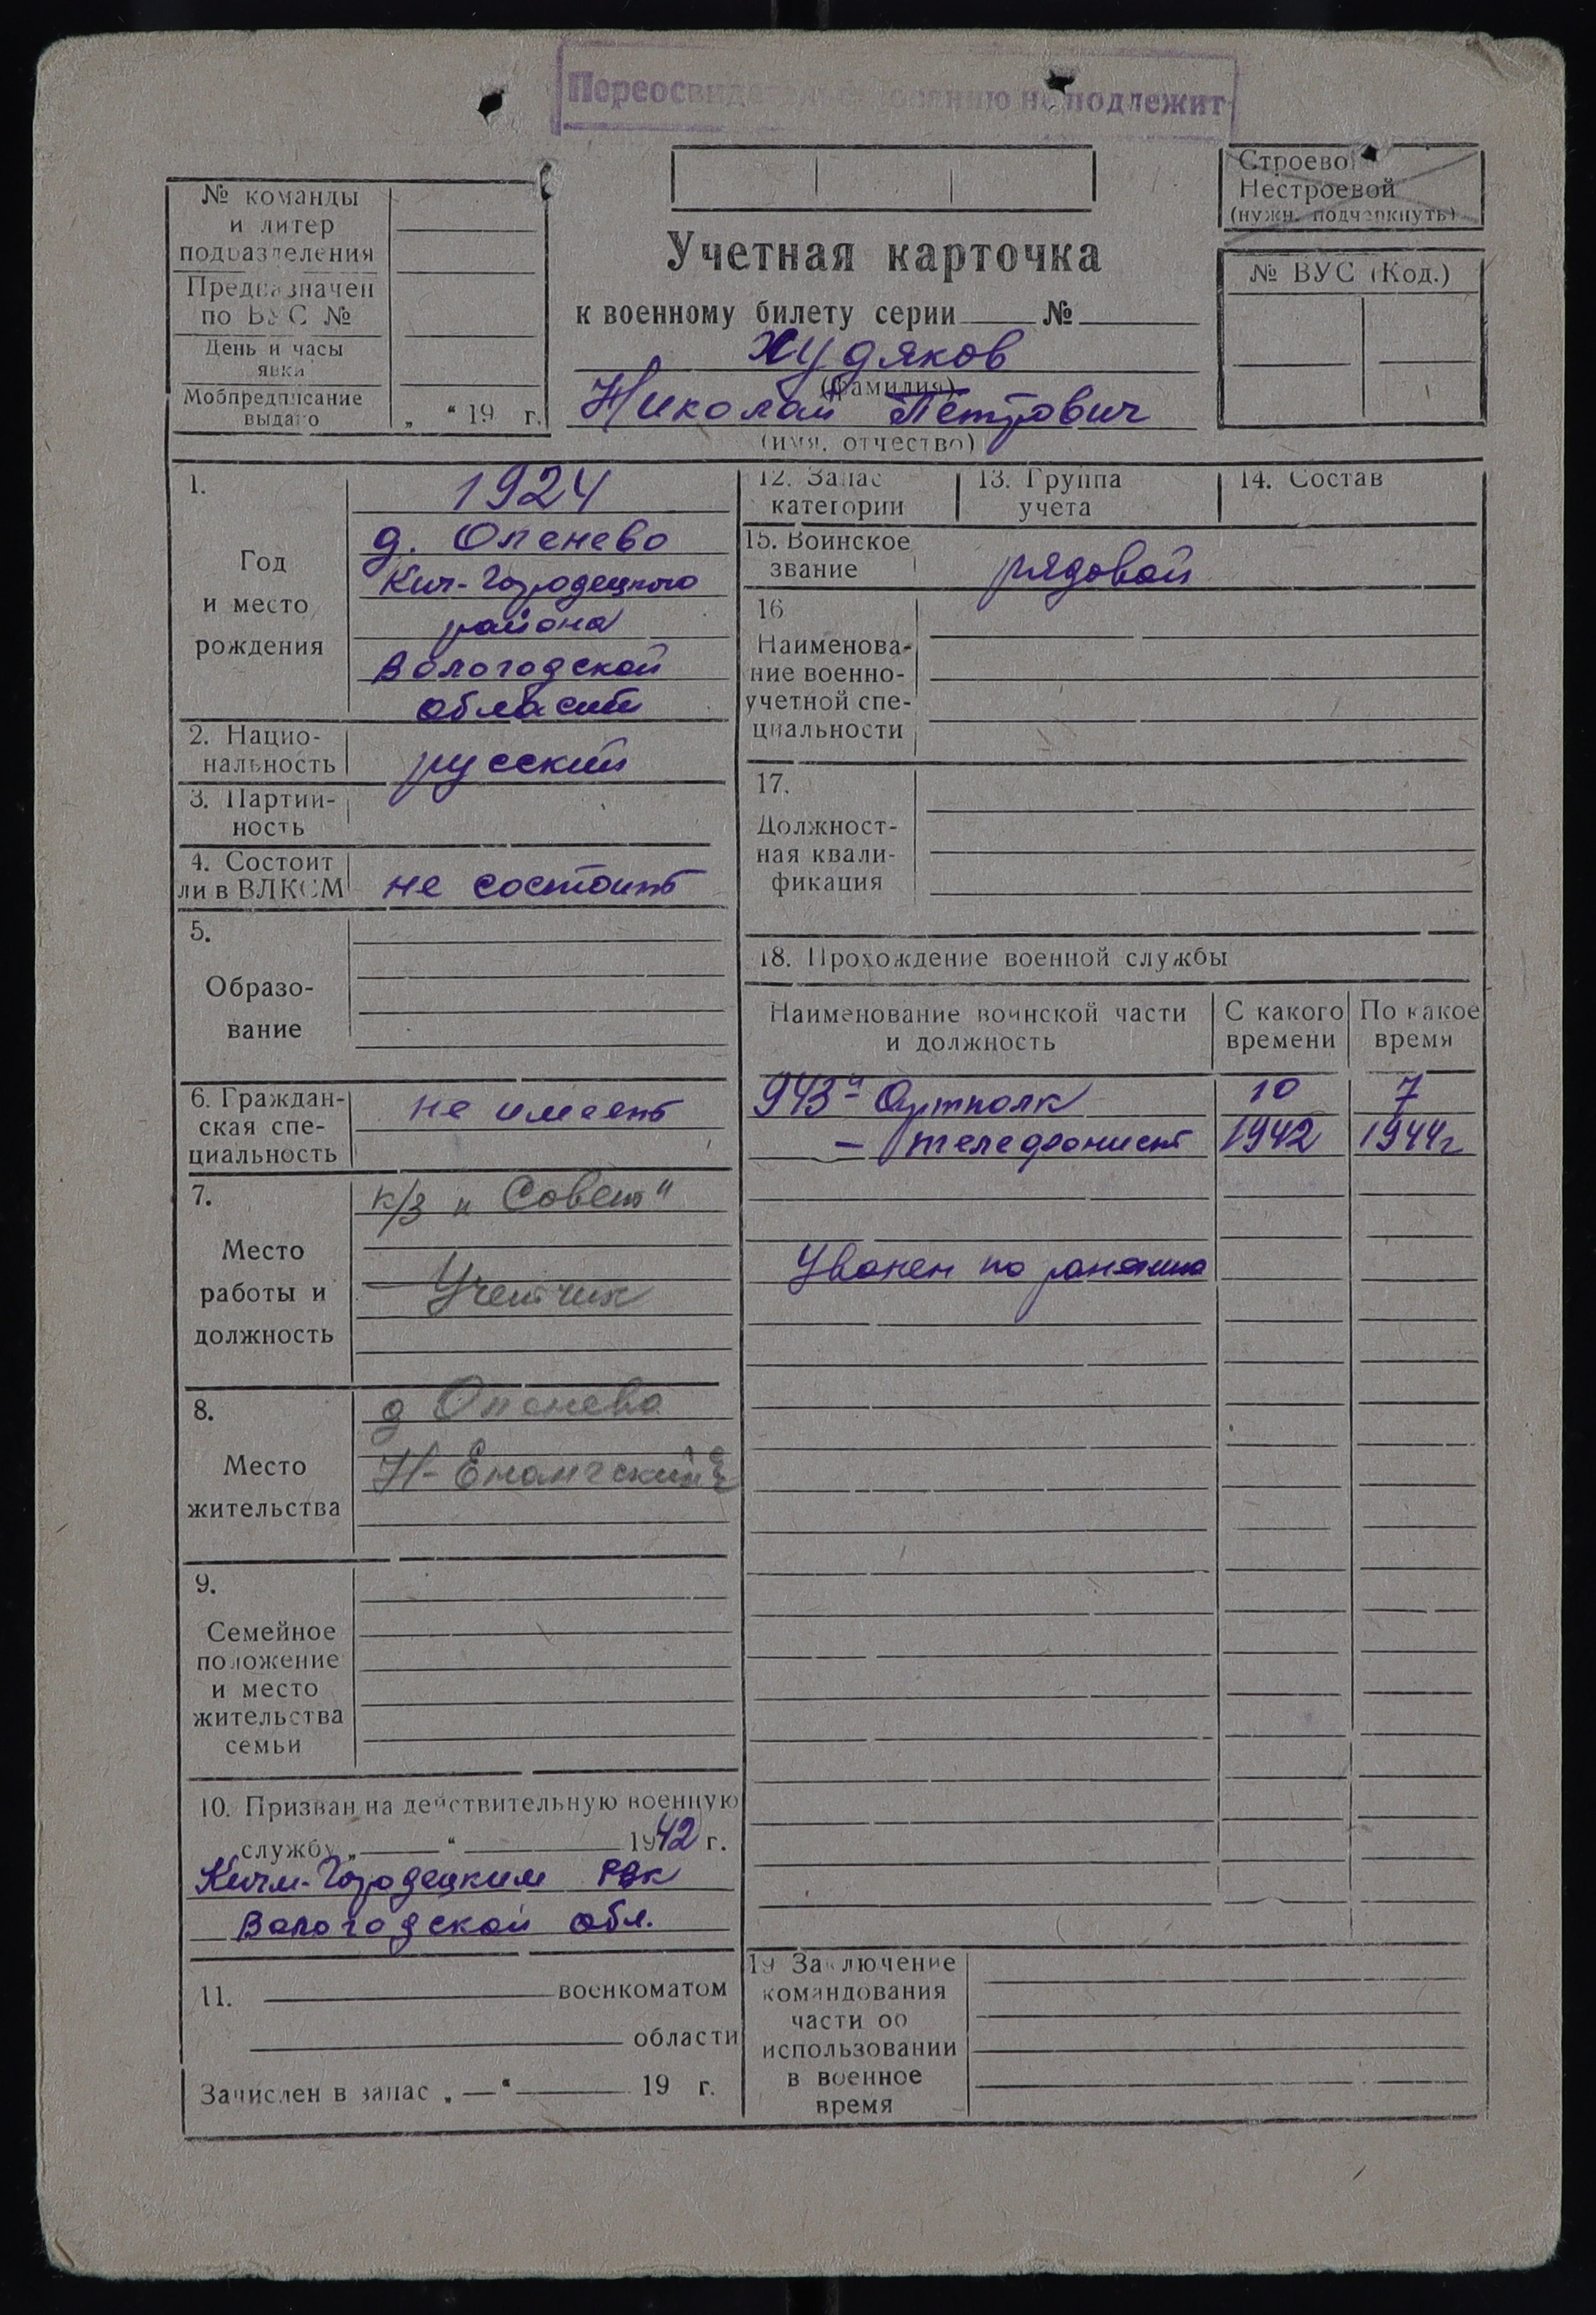 Переосвидетельствованию не подлежит
Строевой
Нестроевой
(нужн. подчеркнуть)
№ команды
и литер
подразделения
Предназначен
по ВУС №
День и часы
явки
Мобпредписание
выдано
„ “ 19 г.
Учетная карточка
к военному билету серии №
Худяков
(фамилия)
Николай Петрович
(имя, отчество)
№ ВУС (Код.)
1.
Год
и место
рождения
1924
д. Опенево
Кич-Городецкого
района
Вологодской
области
2. Нацио-
нальность
русский
3. Партий-
ность
4. Состоит
ли в ВЛКСМ
не состоит
5.
Образо-
вание
6. Граждан-
ская спе-
циальность
не имеет
7.
Место
работы и
должность
к/з „Совет“
Учетчик
8.
Место
жительства
д Опенево
Н-Енангский
9.
Семейное
положение
и место
жительства
семьи
10. Призван на действительную военную
службу „ “ 1942 г.
Кичм-Городецким РВК
Вологодской обл.
11. военкоматом
области
Зачислен в запас „ “ 19 г.
12. Запас
категории
13. Группа
учета
14. Состав
15. Воинское
звание
рядовой
16
Наименова-
ние военно-
учетной спе-
циальности
17.
Должност-
ная квали-
фикация
18. Прохождение военной службы
Наименование воинской части
и должность
С какого
времени
По какое
время
943й Артполк 10 7
– телефонист 1942 1944г
Уволен по ранению
19 Заключение
командования
части об
использовании
в военное
время